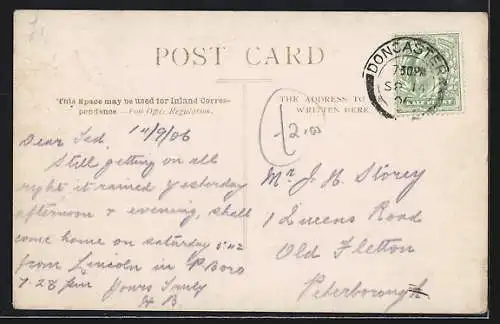 POST CARD
This Space may be used for Inland Corres-
pondence — Post Office Regulation.
THE ADDRESS TO
WRITTEN HERE
DONCASTER
7.30PM
SP 14
06
2.00
14/9/06
Dear Ted.
Still getting on all
right it rained yesterday
afternoon & evening, shall
come home on saturday 5.42
from Lincoln in P Boro
7.28 pm Yours Truly
Mr J. H. Storey
1 Queens Road
Old Fletton
Peterborough